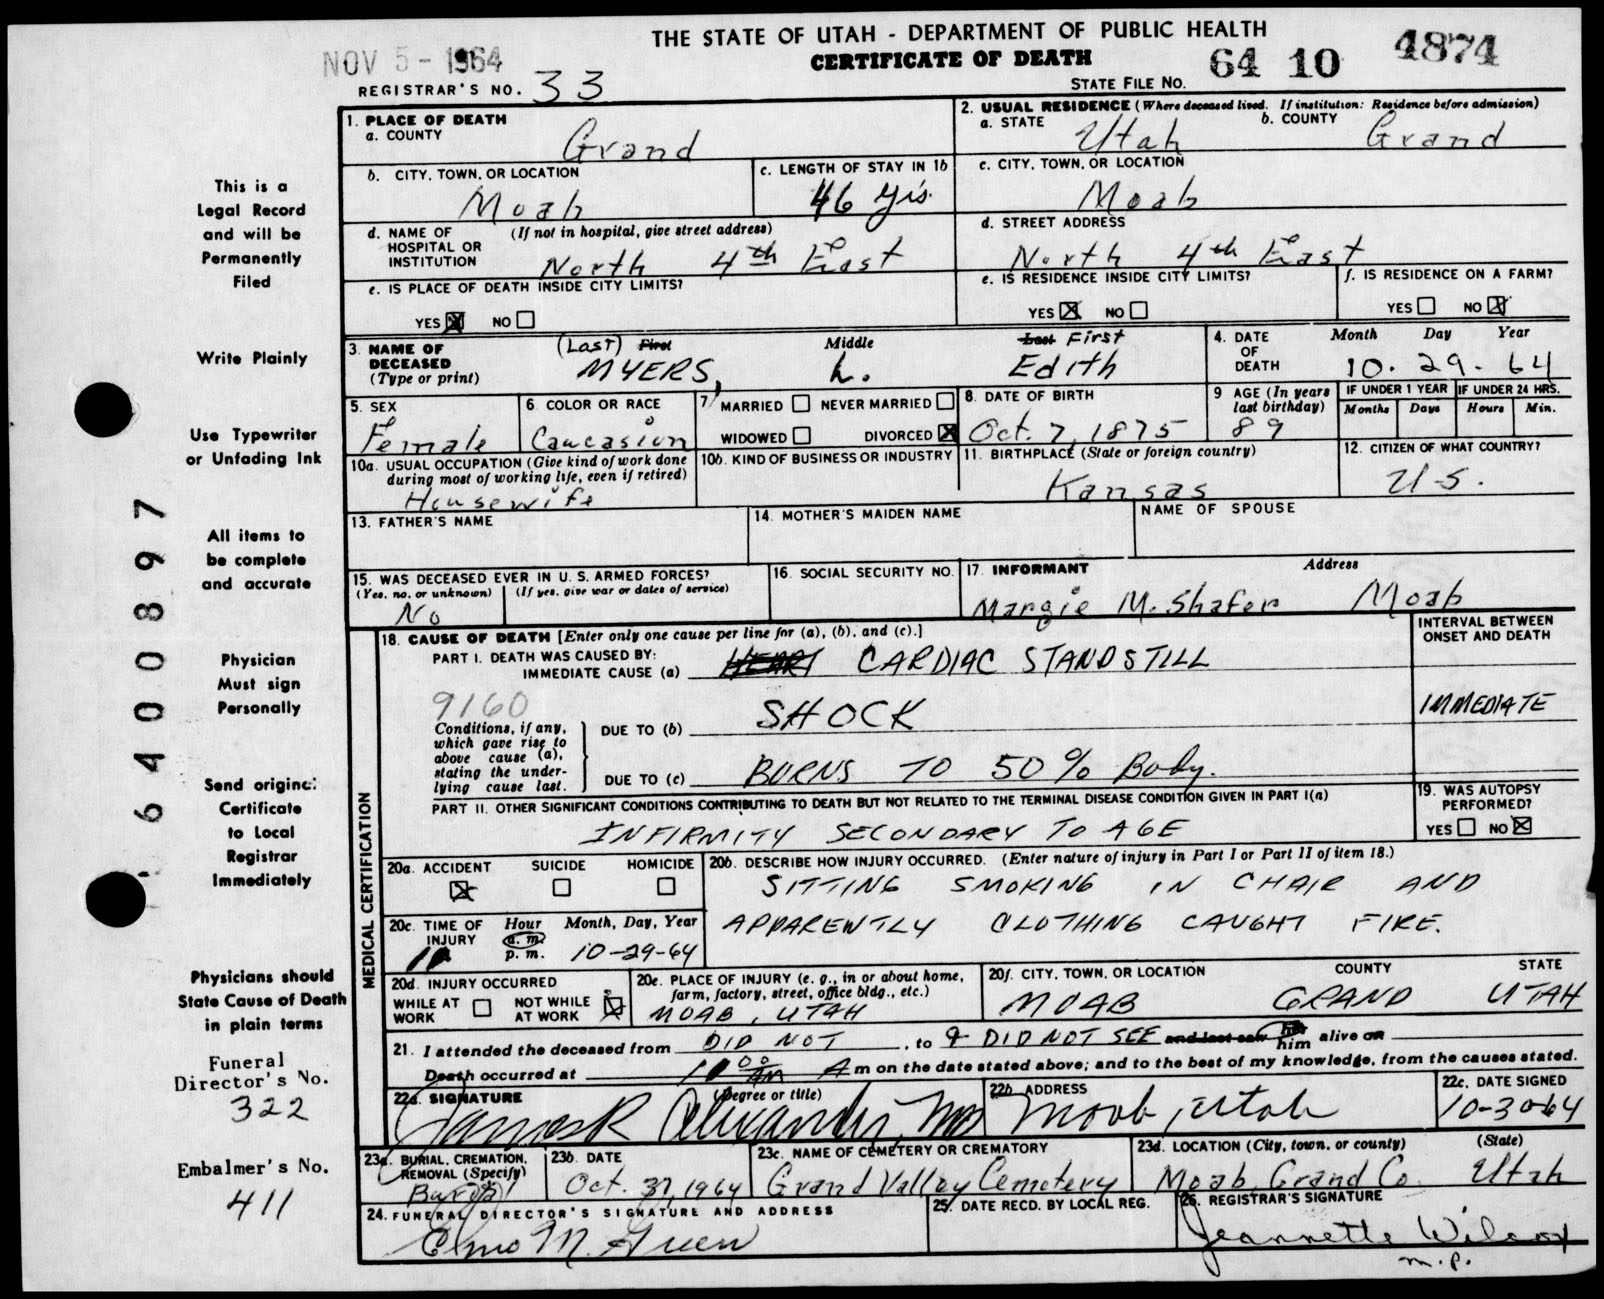 THE STATE OF UTAH - DEPARTMENT OF PUBLIC HEALTH
CERTIFICATE OF DEATH
NOV 5 - 1964
REGISTRAR'S NO. 33
STATE FILE NO. 64 10 4874
1. PLACE OF DEATH
a. COUNTY Grand
2. USUAL RESIDENCE (Where deceased lived. If institution: Residence before admission)
a. STATE Utah b. COUNTY Grand
b. CITY, TOWN, OR LOCATION Moab
c. LENGTH OF STAY IN 1b 46 yrs.
c. CITY, TOWN, OR LOCATION Moab
d. NAME OF HOSPITAL OR INSTITUTION (If not in hospital, give street address) North 4th East
d. STREET ADDRESS North 4th East
e. IS PLACE OF DEATH INSIDE CITY LIMITS?
YES ☒ NO ☐
e. IS RESIDENCE INSIDE CITY LIMITS?
YES ☒ NO ☐
f. IS RESIDENCE ON A FARM?
YES ☐ NO ☒
3. NAME OF DECEASED (Type or print)
(Last) First Middle Last First
MYERS, L. Edith
4. DATE OF DEATH Month Day Year
10. 29. 64
5. SEX Female
6. COLOR OR RACE Caucasion
7. MARRIED ☐ NEVER MARRIED ☐
WIDOWED ☐ DIVORCED ☒
8. DATE OF BIRTH Oct. 7, 1875
9 AGE (In years last birthday) 89
IF UNDER 1 YEAR Months Days
IF UNDER 24 HRS. Hours Min.
10a. USUAL OCCUPATION (Give kind of work done during most of working life, even if retired) Housewife
10b. KIND OF BUSINESS OR INDUSTRY
11. BIRTHPLACE (State or foreign country) Kansas
12. CITIZEN OF WHAT COUNTRY? U.S.
13. FATHER'S NAME
14. MOTHER'S MAIDEN NAME
NAME OF SPOUSE
15. WAS DECEASED EVER IN U. S. ARMED FORCES?
(Yes, no, or unknown) (If yes, give war or dates of service)
No
16. SOCIAL SECURITY NO.
17. INFORMANT Address
Margie M. Shafer Moab
18. CAUSE OF DEATH [Enter only one cause per line for (a), (b), and (c).]
INTERVAL BETWEEN ONSET AND DEATH
PART I. DEATH WAS CAUSED BY:
IMMEDIATE CAUSE (a) HEART CARDIAC STANDSTILL
9160
Conditions, if any, which gave rise to above cause (a), stating the underlying cause last.
DUE TO (b) SHOCK
IMMEDIATE
DUE TO (c) BURNS TO 50% Body.
PART II. OTHER SIGNIFICANT CONDITIONS CONTRIBUTING TO DEATH BUT NOT RELATED TO THE TERMINAL DISEASE CONDITION GIVEN IN PART I(a)
INFIRMITY SECONDARY TO AGE
19. WAS AUTOPSY PERFORMED?
YES ☐ NO ☒
MEDICAL CERTIFICATION
20a. ACCIDENT ☒ SUICIDE ☐ HOMICIDE ☐
20b. DESCRIBE HOW INJURY OCCURRED. (Enter nature of injury in Part I or Part II of item 18.)
SITTING SMOKING IN CHAIR AND
APPARENTLY CLOTHING CAUGHT FIRE.
20c. TIME OF INJURY Hour a. m. p. m. Month, Day, Year
10-29-64
20d. INJURY OCCURRED
WHILE AT WORK ☐ NOT WHILE AT WORK ☒
20e. PLACE OF INJURY (e. g., in or about home, farm, factory, street, office bldg., etc.)
MOAB, UTAH
20f. CITY, TOWN, OR LOCATION COUNTY STATE
MOAB GRAND UTAH
21. I attended the deceased from DID NOT, to & DID NOT SEE and last saw her him alive on
Death occurred at A m on the date stated above; and to the best of my knowledge, from the causes stated.
22a. SIGNATURE (Degree or title)
James R Alexander, MD
22b. ADDRESS Moab, Utah
22c. DATE SIGNED 10-30-64
23a. BURIAL, CREMATION, REMOVAL (Specify) Burial
23b. DATE Oct. 31, 1964
23c. NAME OF CEMETERY OR CREMATORY Grand Valley Cemetery
23d. LOCATION (City, town, or county) (State)
Moab, Grand Co. Utah
24. FUNERAL DIRECTOR'S SIGNATURE AND ADDRESS
Elmo M. Green
25. DATE RECD. BY LOCAL REG.
26. REGISTRAR'S SIGNATURE
Jeannette Wilcox
m.p.
This is a
Legal Record
and will be
Permanently
Filed
Write Plainly
Use Typewriter
or Unfading Ink
All items to
be complete
and accurate
Physician
Must sign
Personally
Send original
Certificate
to Local
Registrar
Immediately
Physicians should
State Cause of Death
in plain terms
Funeral
Director's No.
322
Embalmer's No.
411
6400897